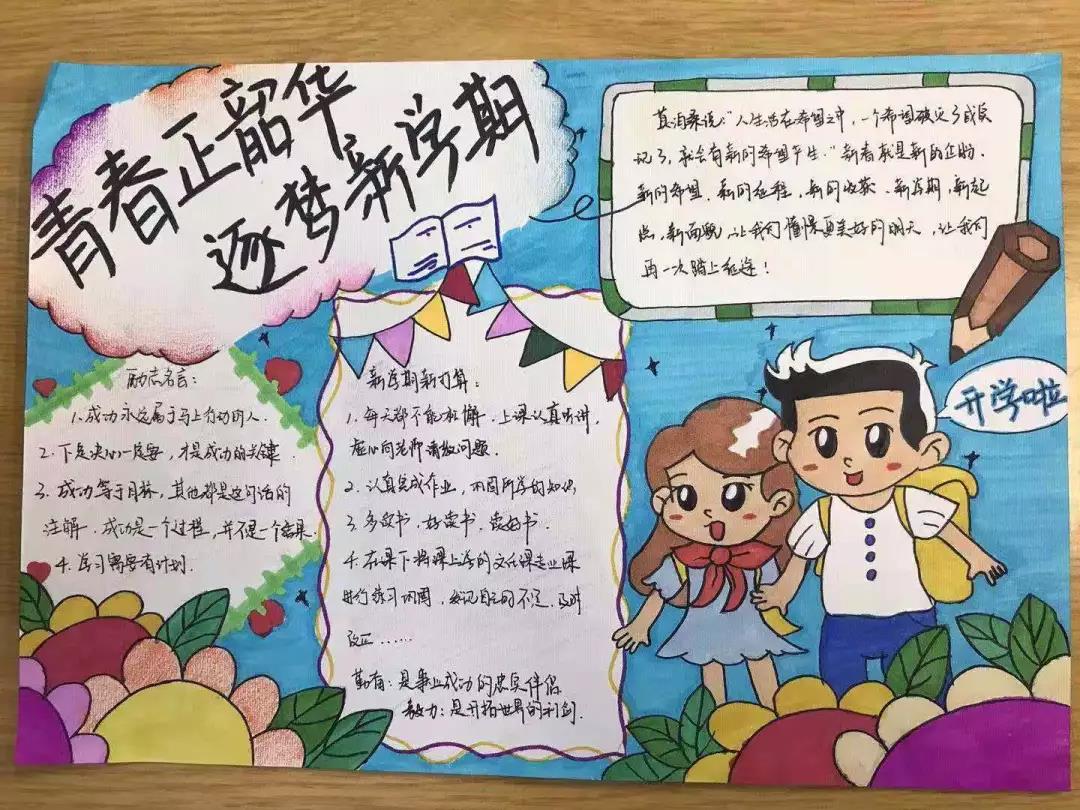 青春正韶华
逐梦新学期
莫泊桑说:"人生活在希望之中,一个希望破灭了或实
现了,就会有新的希望产生."新春就是新的企盼、
新的希望、新的征程、新的收获.新学期,新起
点,新面貌,让我们憧憬更美好的明天,让我们
再一次踏上征途!
开学啦
励志名言:
1.成功永远属于马上行动的人.
2.下定决心一定要,才是成功的关键.
3.成功等于目标,其他都是这句话的
注解.成功是一个过程,并不是一个结果.
4.学习需要有计划.
新学期新打算:
1.每天都不能松懈.上课认真听讲,
虚心向老师请教问题.
2.认真完成作业,巩固所学的知识
3.多读书、好读书、读好书.
4.在课下将课上学的文化课专业课
进行练习巩固,牢记自己的不足,及时
改正……
勤奋:是事业成功的忠实伴侣
毅力:是开拓世界的利剑.